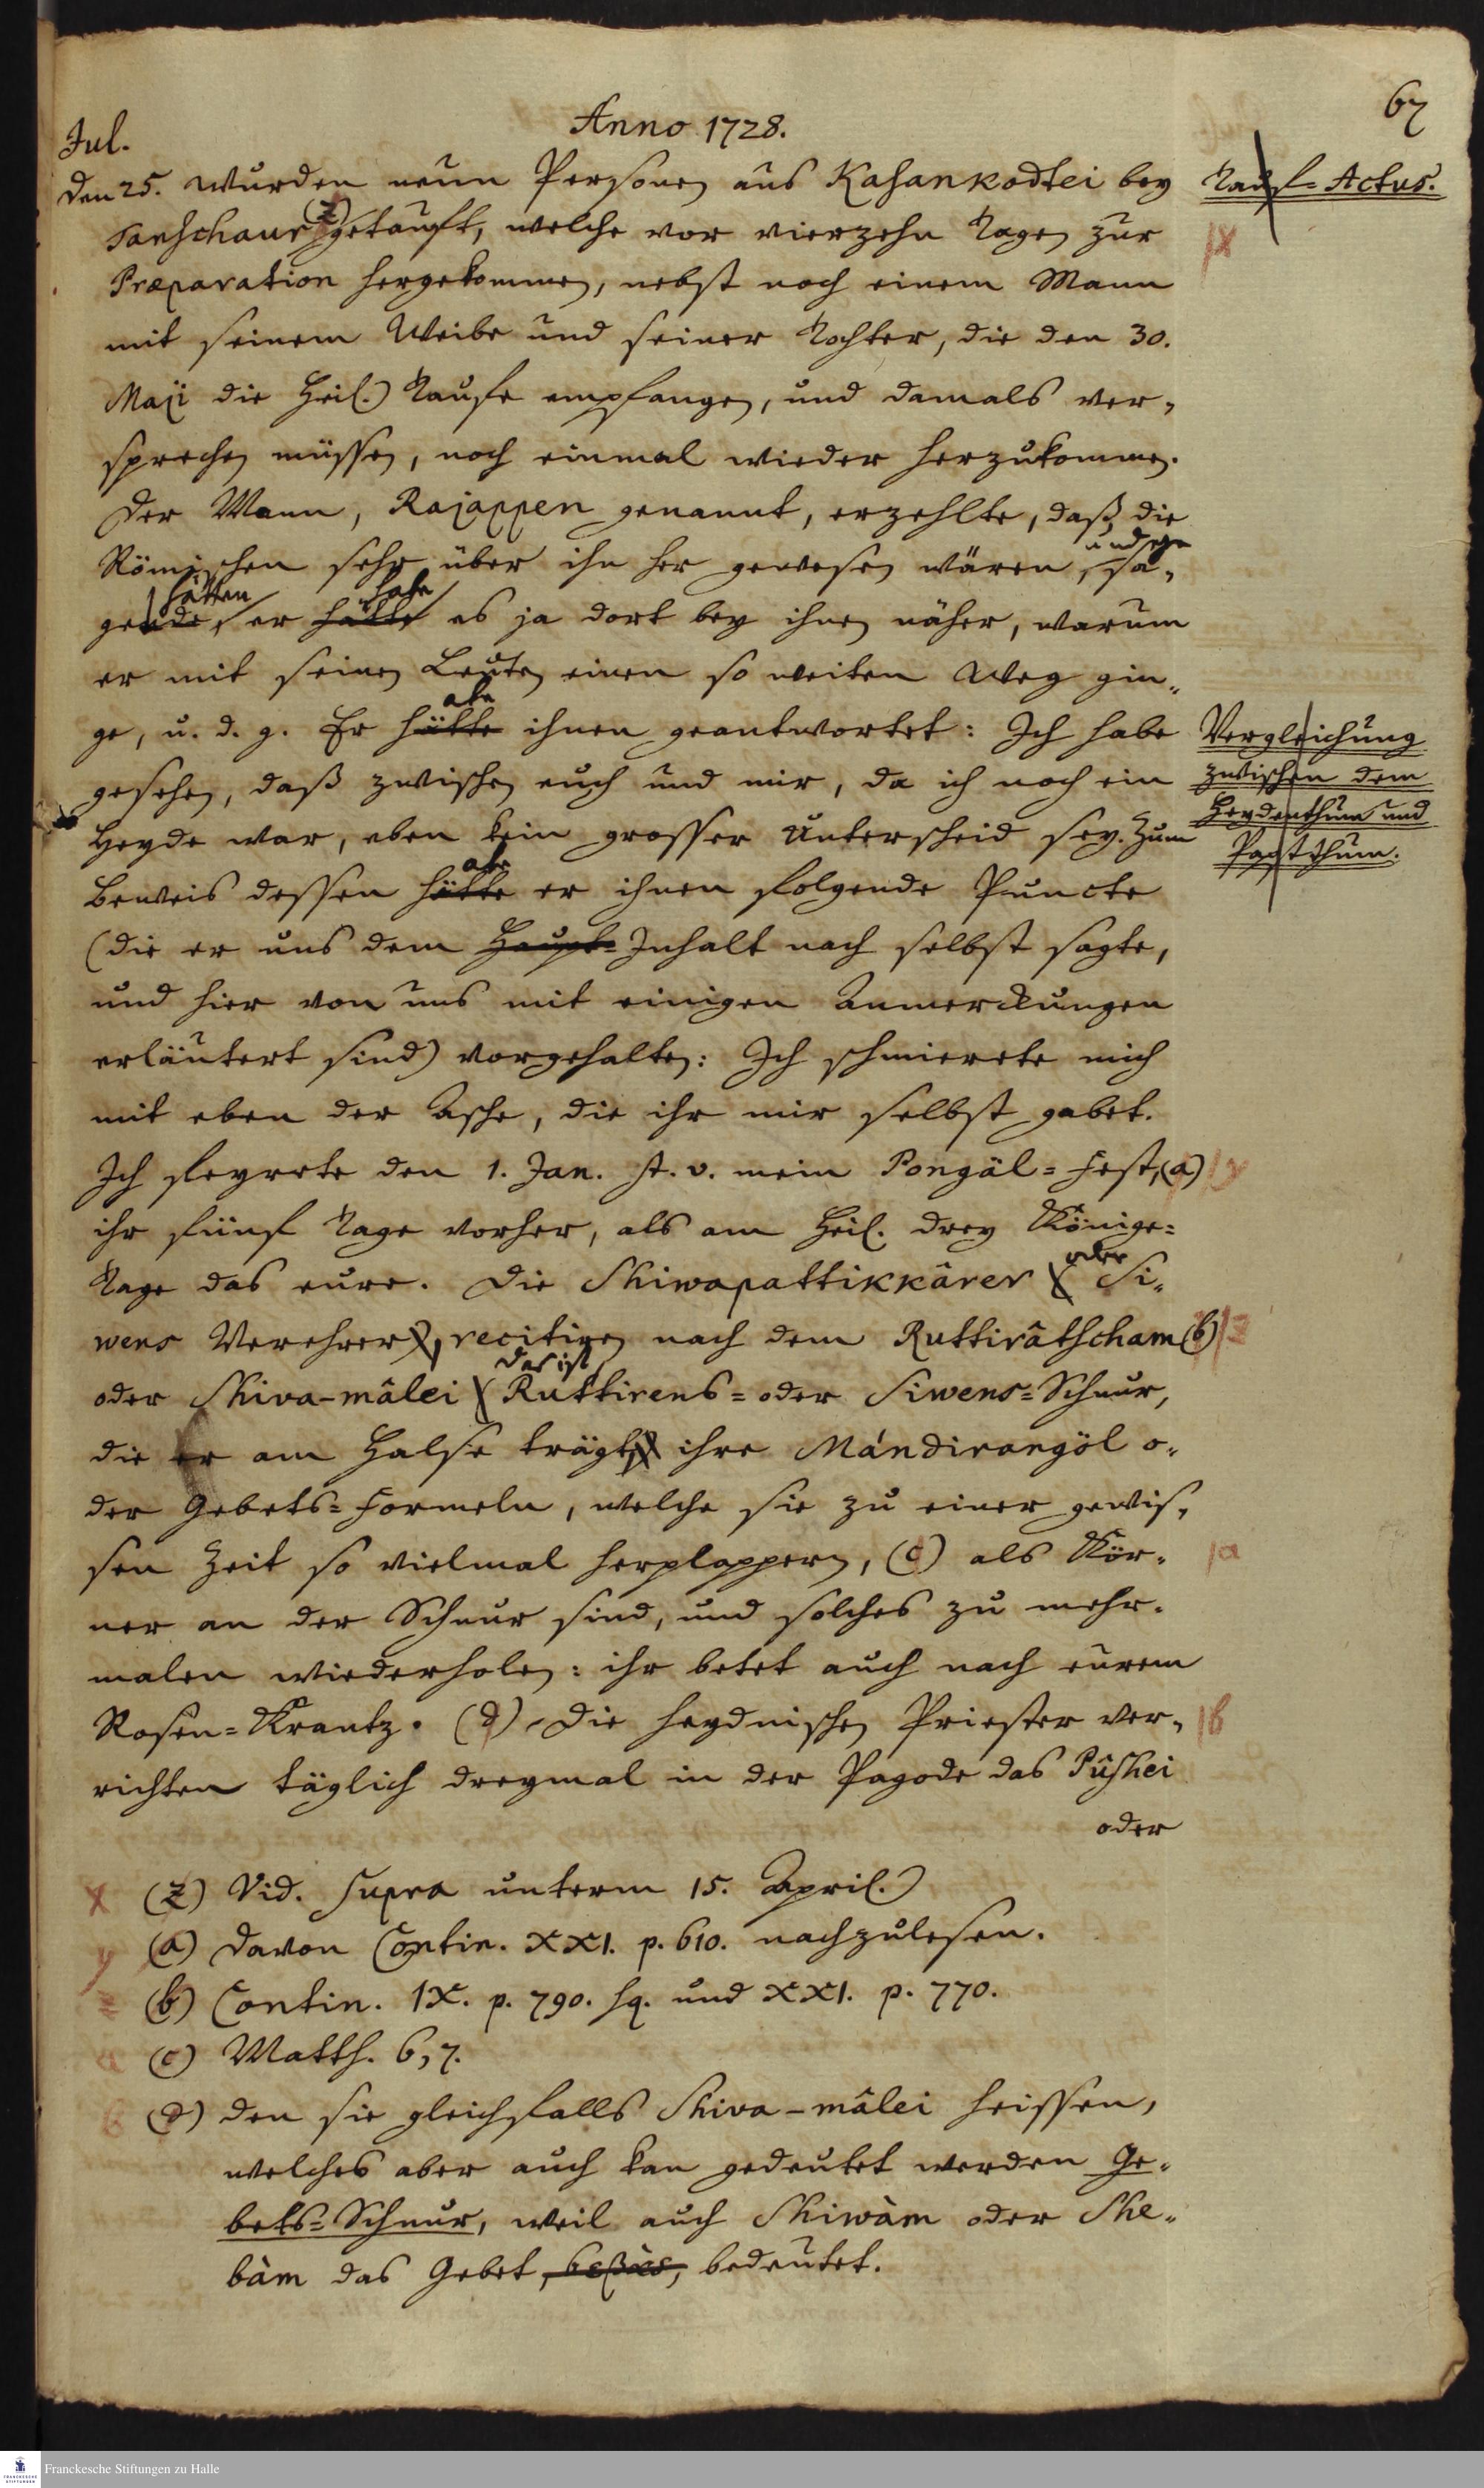 67
Anno 1728.
Jul.
den 25. wurden neun Personen aus Kasankodtei bey
Tauf-Actus.
Tanschaur (z) getauft, welche vor vierzehn Tagen zur
x
Præparation hergekommen, nebst noch einem Mann
mit seinem Weibe und seiner Tochter, die den 30.
Maji die Heil. Taufe empfangen, und damals ver-
sprechen müssen, noch einmal wieder herzukommen.
Der Mann, Rajappen genannt, erzehlte, daß die
Römischen sehr über ihn her gewesen wären, und ge sa-
gende, hätten er hätte habe es ja dort bey ihnen näher, warum
er mit seinen Leuten einen so weiten Weg gin-
ge, u. d. g. Er hätte abe ihnen geantwortet: Ich habe
Vergleichung
zwischen dem
Heydenthum und
Papstthum.
gesehen, daß zwischen euch und mir, da ich noch ein
Heyde war, eben kein grosser Unterscheid sey. Zum
Beweis dessen hätte abe er ihnen folgende Puncte
(die er uns dem Haupt-Inhalt nach selbst sagte,
und hier von uns mit einigen Anmerckungen
erläutert sind) vorgehalten: Ich schmierete mich
mit eben der Asche, die ihr mir selbst gabet.
Ich feyrete den 1. Jan. st. v. mein Pongäl-Fest, (a) y
ihr fünf Tage vorher, als am Heil. drey Könige-
Tage das eure. Die Shiwapattikkârer ( oder Si-
wens Verehrer), recitiren nach dem Ruttirâtscham (b) z
oder Shiva-mâlei ( das ist Ruttirens- oder Siwens-Schnur,
die er am Halse trägt) ihre Mándirangöl o-
der Gebets-Formeln, welche sie zu einer gewis-
sen Zeit so vielmal herplappern, (c) als Kör- a
ner an der Schnur sind, und solches zu mehr-
malen wiederholen: ihr betet auch nach eurem
Rosen-Krantz. (d) Die heydnischen Priester ver- b
richten täglich dreymal in der Pagode das Pûshei
oder
x (z) Vid. supra unterm 15. April.
y (a) davon Contin. XXI. p. 610. nachzulesen.
z (b) Contin. IX. p. 790. sq. und XXI. p. 770.
a (c) Matth. 6, 7.
b (d) den sie gleichfalls Shiva-mâlei heissen,
welches aber auch kan gedeutet werden Ge-
bets-Schnur, weil auch Shiwàm oder She-
bàm das Gebet, bedeutet.
FRANCKESCHE STIFTUNGEN
Franckesche Stiftungen zu Halle